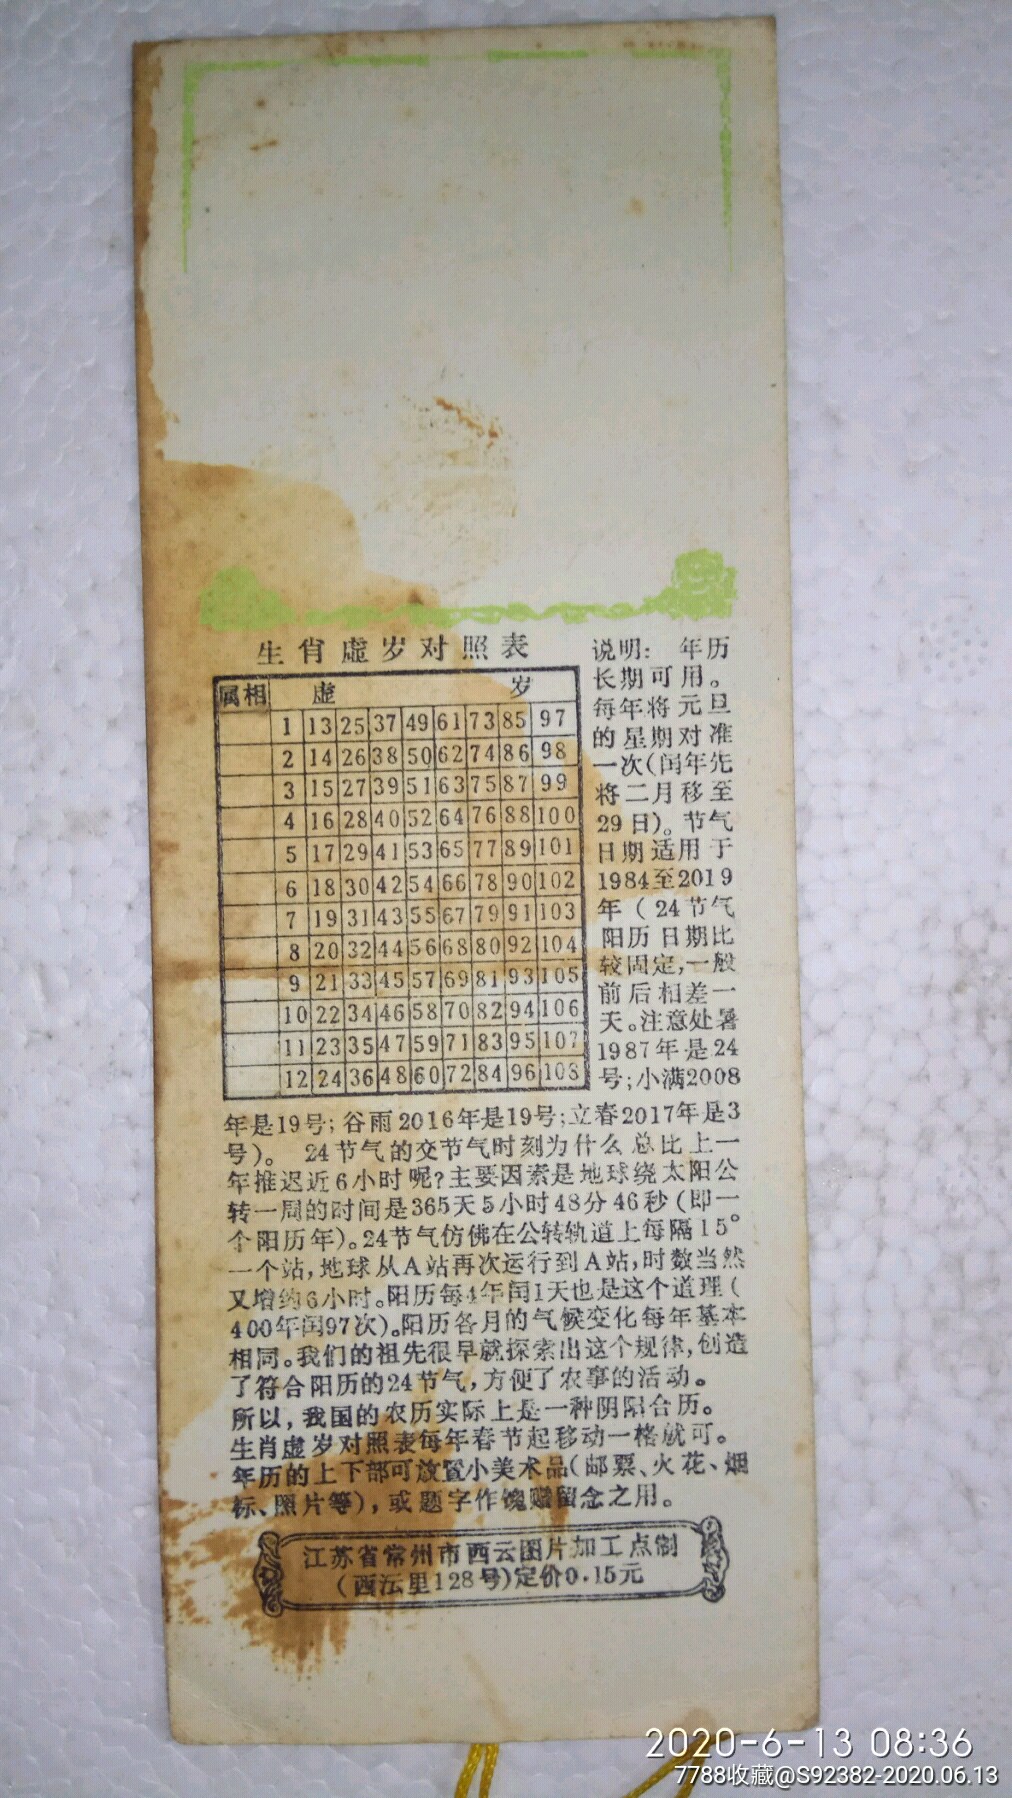 生肖虚岁对照表
属相 虚 岁
1 13 25 37 49 61 73 85 97
2 14 26 38 50 62 74 86 98
3 15 27 39 51 63 75 87 99
4 16 28 40 52 64 76 88 100
5 17 29 41 53 65 77 89 101
6 18 30 42 54 66 78 90 102
7 19 31 43 55 67 79 91 103
8 20 32 44 56 68 80 92 104
9 21 33 45 57 69 81 93 105
10 22 34 46 58 70 82 94 106
11 23 35 47 59 71 83 95 107
12 24 36 48 60 72 84 96 108
说明： 年历
长期可用。
每年将元旦
的星期对准
一次(闰年先
将二月移至
29日)。节气
日期适用于
1984至2019
年（24节气
阳历日期比
较固定,一般
前后相差一
天。注意处暑
1987年是24
号；小满2008
年是19号；谷雨2016年是19号；立春2017年是3
号)。 24节气的交节气时刻为什么总比上一
年推迟近6小时呢?主要因素是地球绕太阳公
转一周的时间是365天5小时48分46秒(即一
个阳历年)。24节气仿佛在公转轨道上每隔15°
一个站,地球从A站再次运行到A站,时数当然
又增约6小时。阳历每4年闰1天也是这个道理(
400年闰97次)。阳历各月的气候变化每年基本
相同。我们的祖先很早就探索出这个规律,创造
了符合阳历的24节气,方便了农事的活动。
所以,我国的农历实际上是一种阴阳合历。
生肖虚岁对照表每年春节起移动一格就可。
年历的上下部可放置小美术品(邮票、火花、烟
标、照片等),或题字作馈赠留念之用。
江苏省常州市西云图片加工点制
(西沄里128号)定价0.15元
2020-6-13 08:36
7788收藏@S92382-2020.06.13